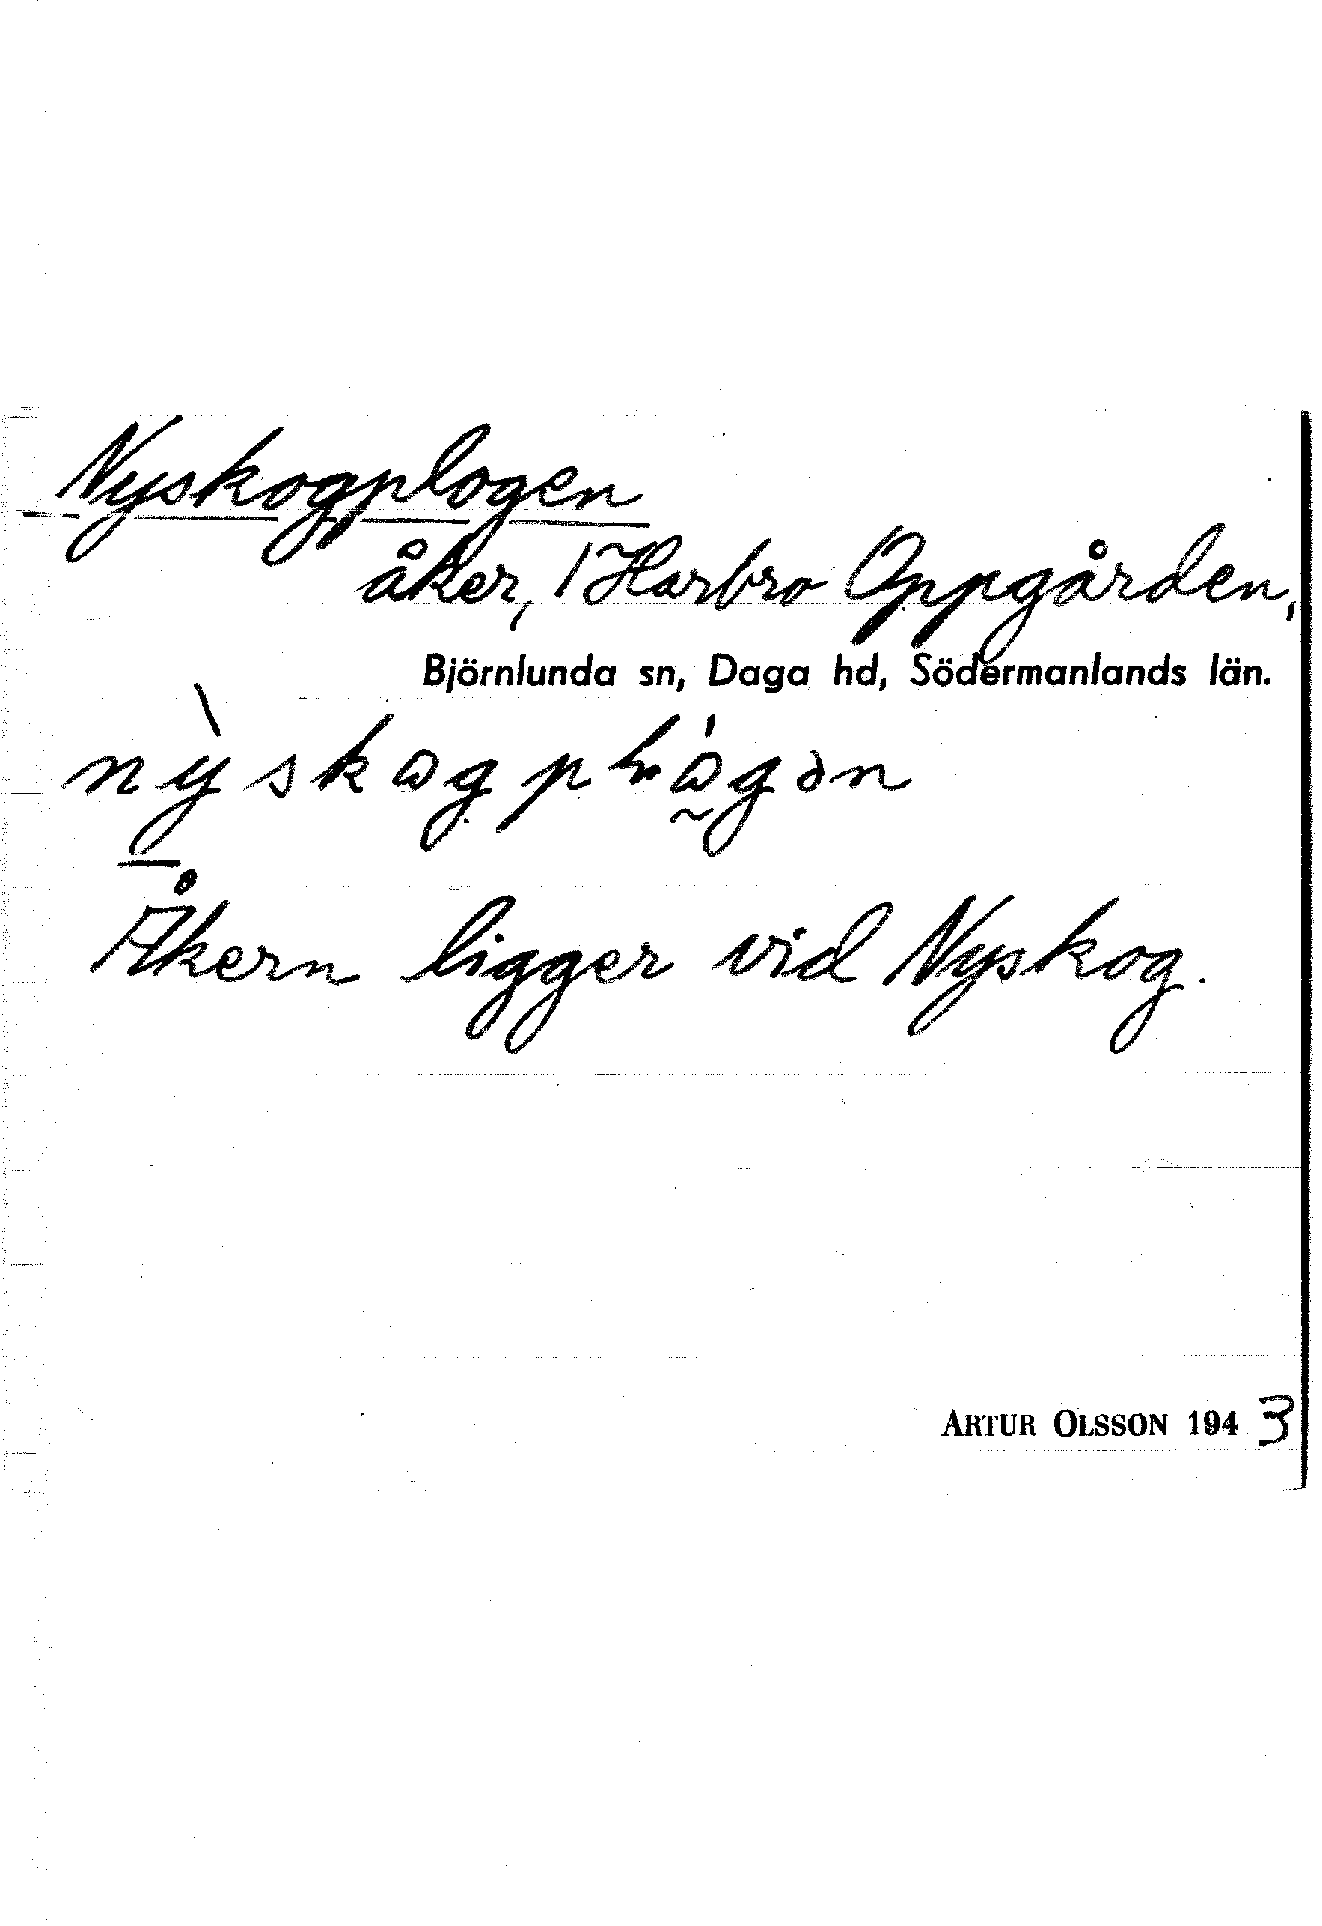 Nyskogplogen
åker, 1 Harbro Oppgården,
Björnlunda sn, Daga hd, Södermanlands län.
Åkern ligger vid Nyskog.
ARTUR OLSSON 1943